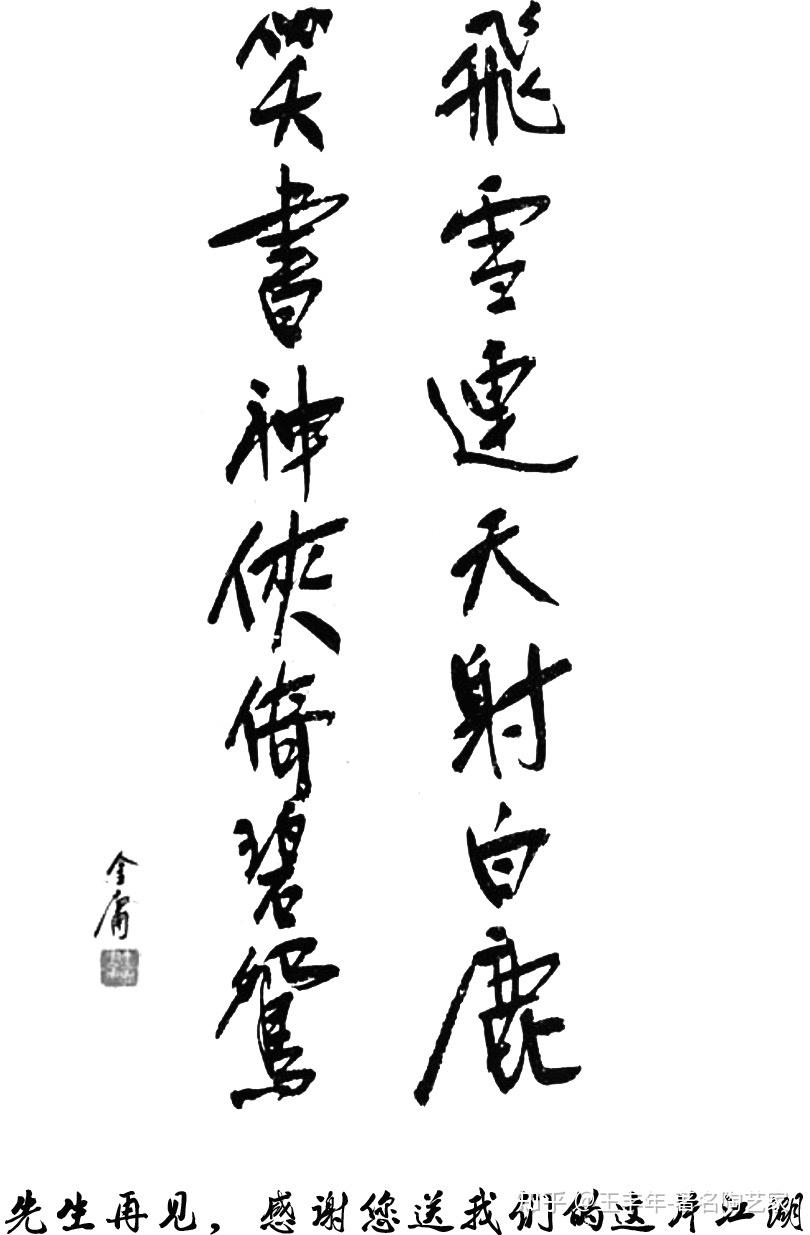 飛雪連天射白鹿
笑書神俠倚碧鴛
金庸
先生再见，感谢您送我们的这片江湖
知乎 @王丰年-著名陶艺家